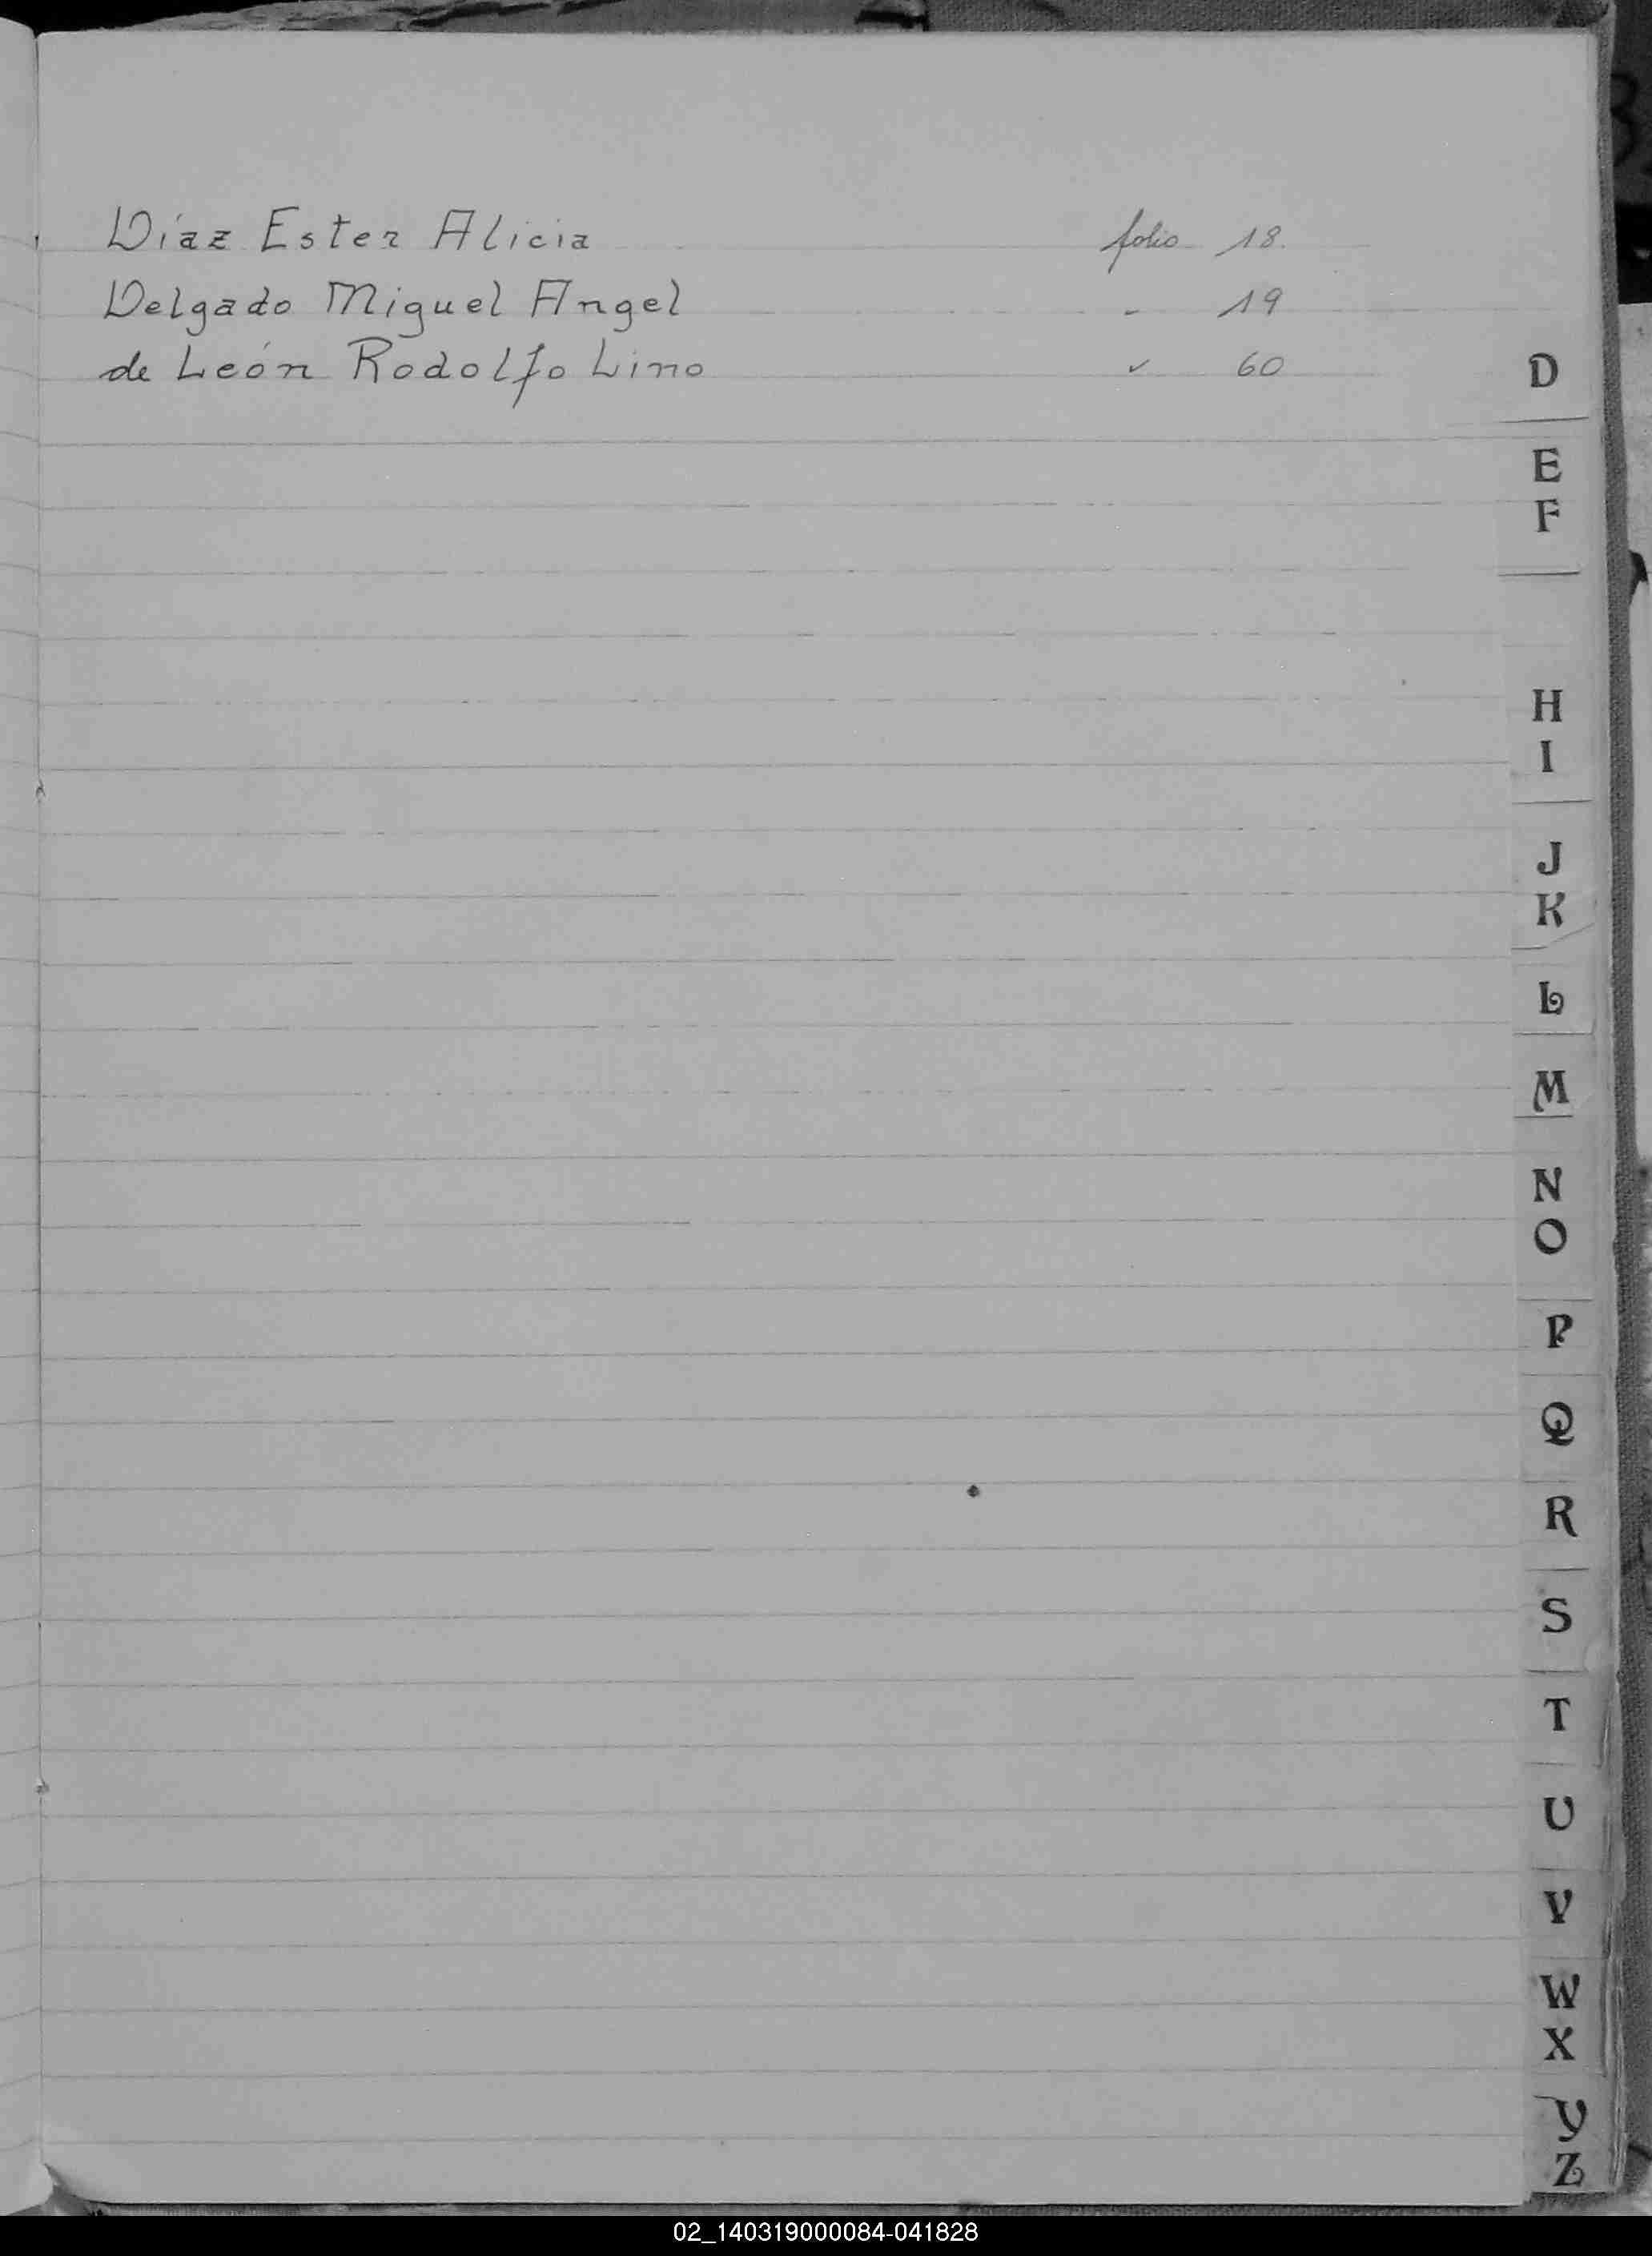 Díaz Ester Alicia folio 18.
Delgado Miguel Angel " 19
de León Rodolfo Lino " 60
D
E
F
H
I
J
K
L
M
N
O
P
Q
R
S
T
U
V
W
X
Y
Z
02_140319000084-041828